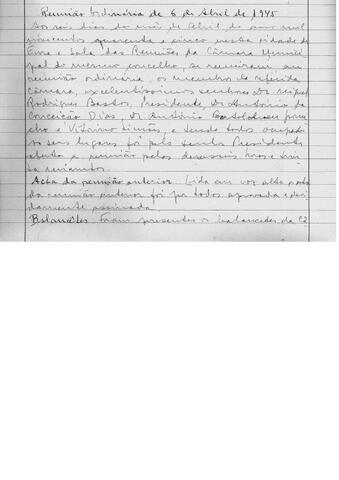 Reunião Ordinária de 6 de Abril de 1945
Aos seis dias do mês de Abril do ano mil
novecentos quarenta e cinco nesta cidade de
e Sala das Reuniões da Câmara Munici
pal do mesmo concelho, se reuniram em
reunião ordinária, os membros da referida
Câmara, excelentíssimos senhores Dr. Miguel
Rodrigues Bastos, Presidente, Dr. António da
Conceição Dias, Dr. António Bartolomeu
e Vitorino Simão, e sendo todos ocupado
os seus lugares foi pelo senhor Presidente
aberta a reunião pelas dezasseis horas e trin
ta minutos.
Acta da reunião anterior. Lida em voz alta a acta
da reunião anterior foi por todos aprovada e devi
damente assinada.
Balancetes. Foram presentes os balancetes da Câ